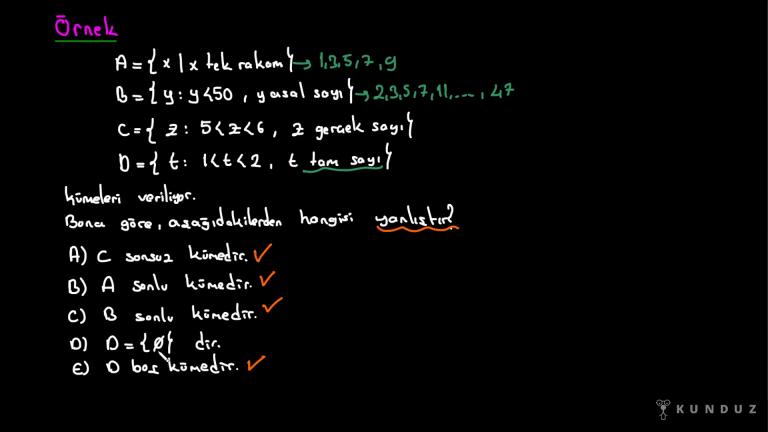 Örnek
A = { x | x tek rakam } → 1,3,5,7,9
B = { y : y < 50 , y asal sayı } → 2,3,5,7,11,...., 47
C = { z : 5 < z < 6 , z gerçek sayı }
D = { t : 1 < t < 2 , t tam sayı }
kümeleri veriliyor.
Buna göre, aşağıdakilerden hangisi yanlıştır?
A) C sonsuz kümedir. ✓
B) A sonlu kümedir. ✓
C) B sonlu kümedir. ✓
D) D = { ø } dir.
E) D boş kümedir. ✓
KUNDUZ